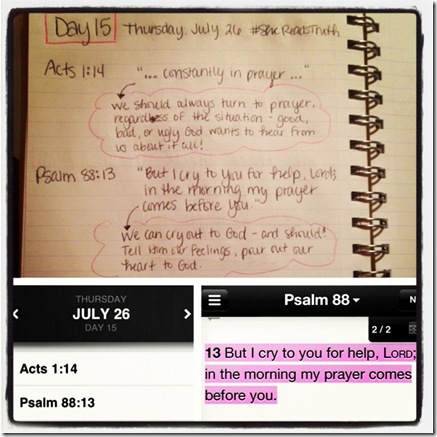 Day 15 Thursday. July 26 #SheReadsTruth
Acts 1:14 "... constantly in prayer ..."
we should always turn to prayer.
regardless of the situation - good,
bad, or ugly God wants to hear from
us about it all!
Psalm 88:13 "But I cry to you for help, Lord;
in the morning my prayer
comes before you."
We can cry out to God - and should!
Tell Him our feelings, pour out our
heart to God.
THURSDAY
JULY 26
DAY 15
Acts 1:14
Psalm 88:13
Psalm 88
2 / 2
13 But I cry to you for help, LORD;
in the morning my prayer comes
before you.